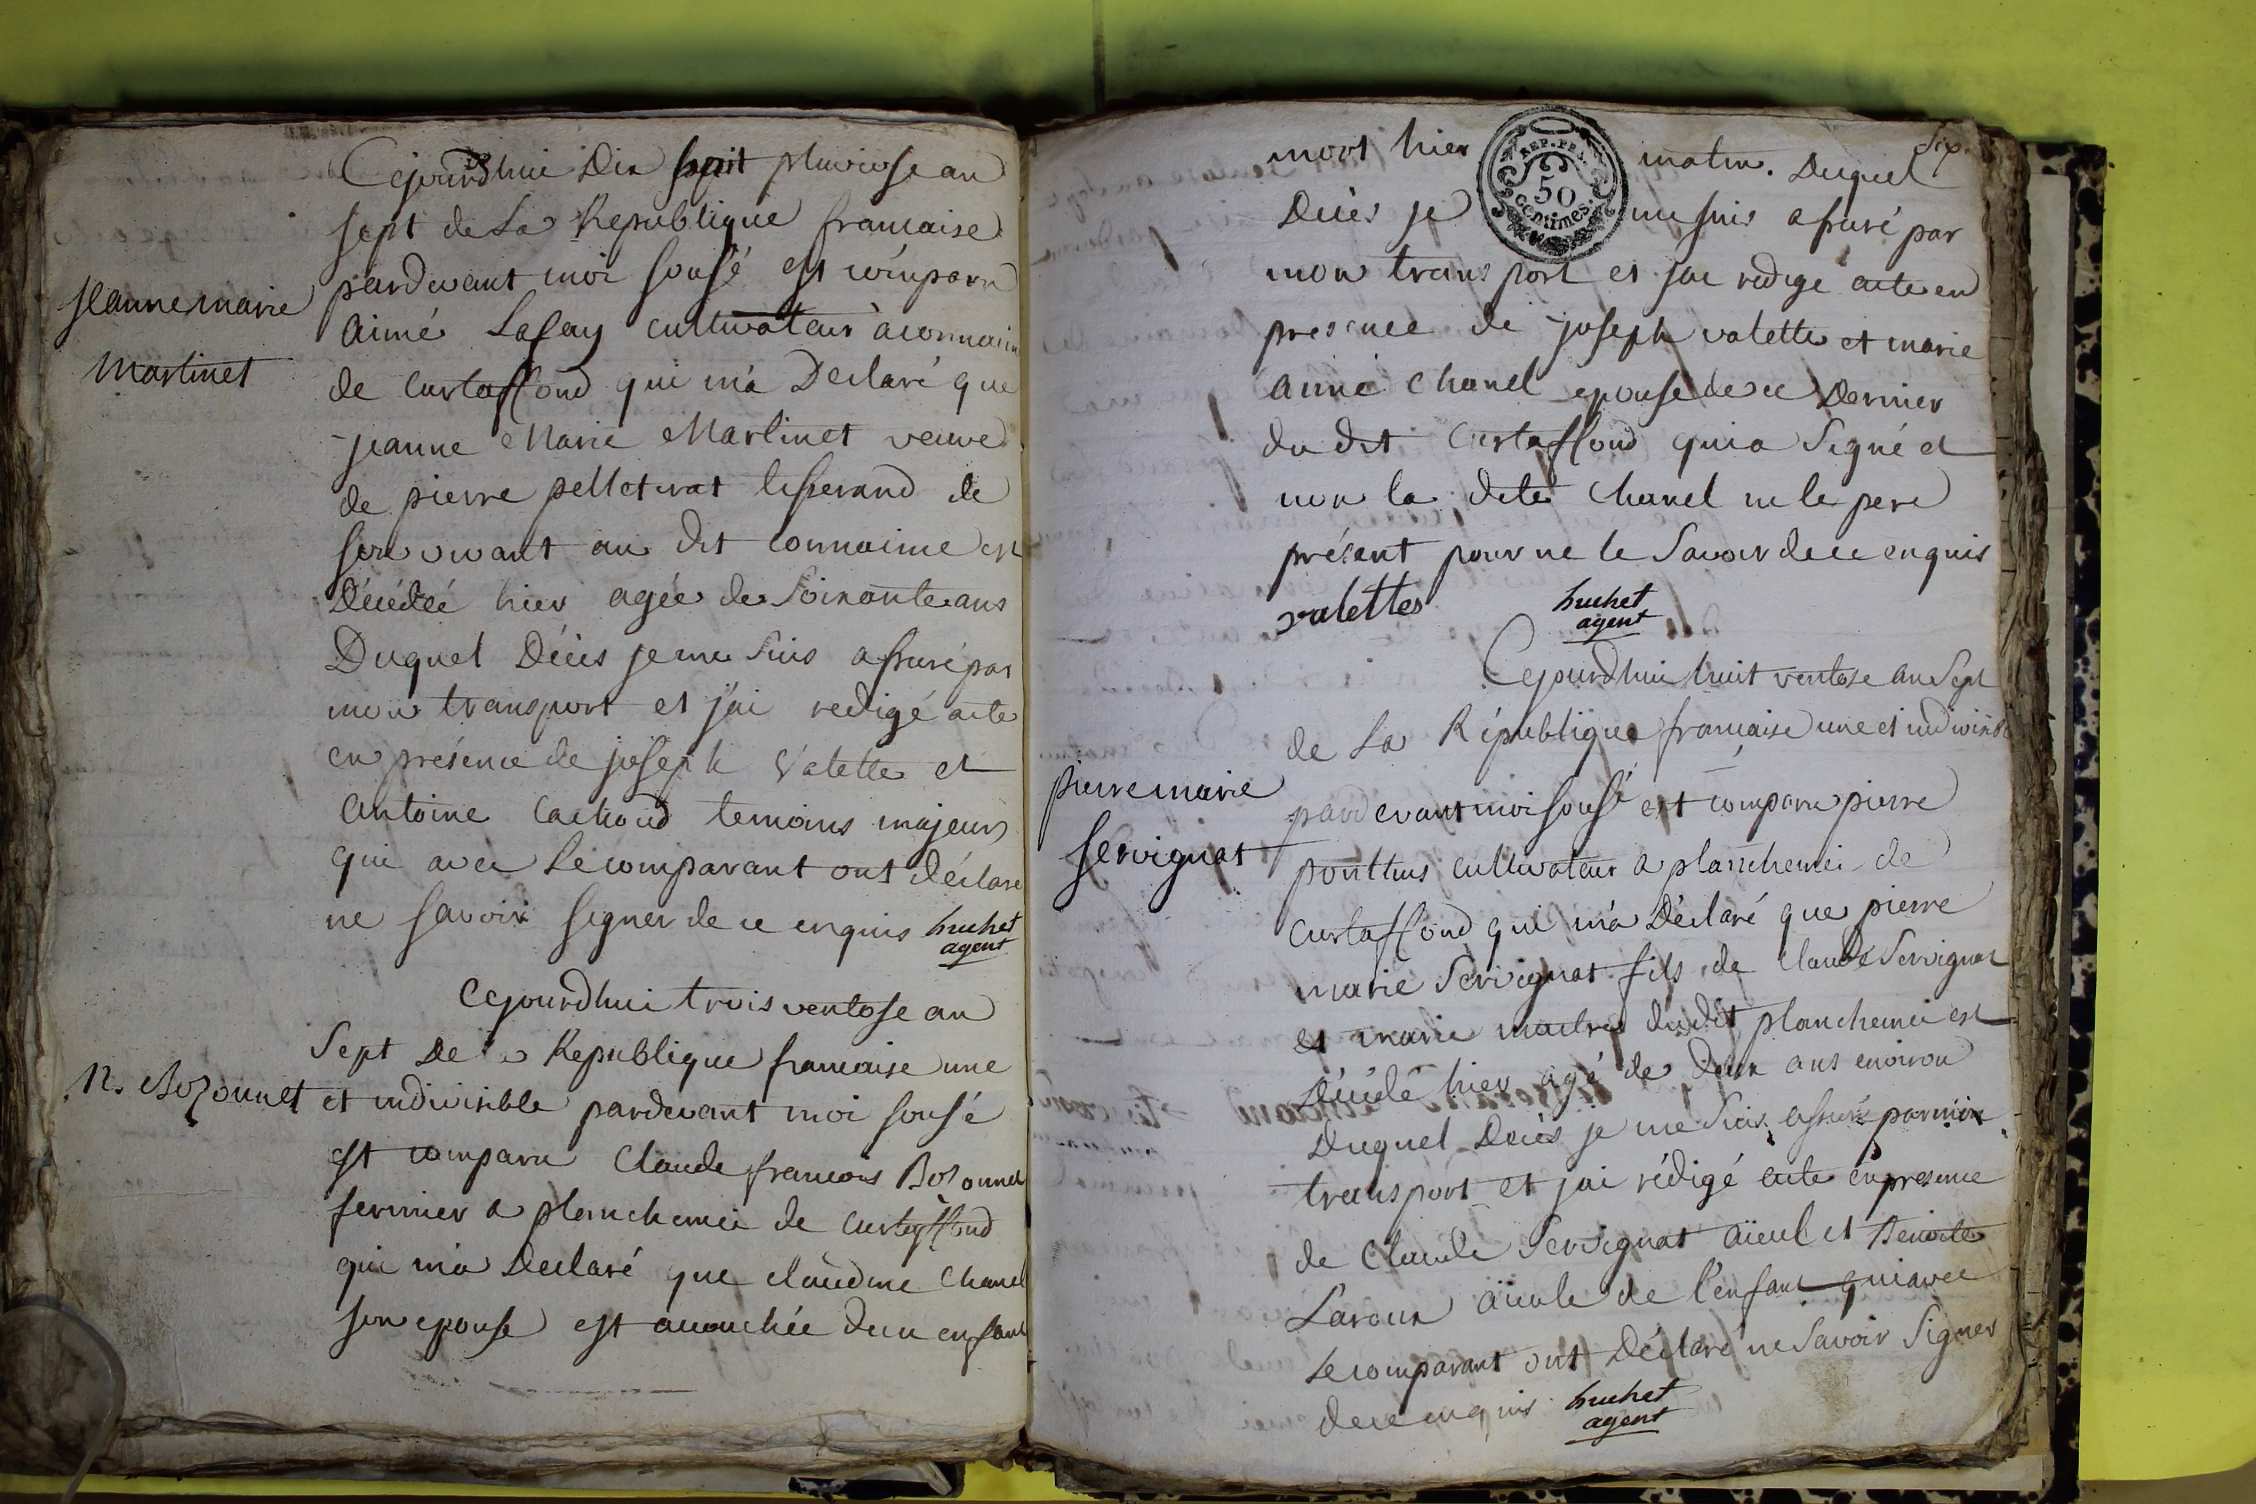 Cejourdhui Dix pluviose an
sept de La Republique francaise
pardevant moi sousé est comparu
aimé Lafay cultivateur a connaim
de curtaffond qui m'a Declaré que
jeanne Marie Martinet veuve
de pierre pelleterat tisserand de
son vivant au dit connaime est
Décédeé hier agée de Soixante ans
Duquel Décès je me suis assuré par
mon transport et j'ai redigé acte
en présence de joseph Valette et
Antoine Cachoud temoins majeurs
qui avec Le comparant ont déclaré
ne savoir signer de ce enquis huchet
agent
jeanne marie
Martinet
Cejourdhui trois ventose an
Sept De La Republique francaise une
et indivisible pardevant moi sousé
est comparu Claude francois Bozonnet
fermier a planchemei de curtaffond
qui m'a Declaré que claudine Chanel
son epouse est acouchée d'un enfant
N. Bozonnet
Six.
mort hier matin. Duquel
Décès je me suis assuré par
mon transport et j'ai redigé acte en
presence de joseph valette et marie
aimé Chanel epouse de ce Dernier
du dit Curtaffond qui a Signé et
non la dite Chanel ni le pere
présent pour ne le Savoir de ce enquis
valettes huchet
agent
REP. FRA.
50
centimes.
Cejourdhui huit ventose an Sept
de La République francaise une et indivisible
pardevant moi sousé est comparu pierre
ponthus cultivateur a planchemei de
curtaffond qui m'a Déclaré que pierre
marie Servignat fils de Claude Servignat
et marie du dit planchemei est
Décédé hier agé de Deux ans environ
Duquel Décès je me suis assuré par mon
transport et j'ai rédigé acte en presence
de Claude Servignat aïeul et Benoite
Laroux aïeule de l'enfant qui avec
Le comparant ont Déclaré ne Savoir Signer
de ce enquis huchet
agent
pierre marie
servignat